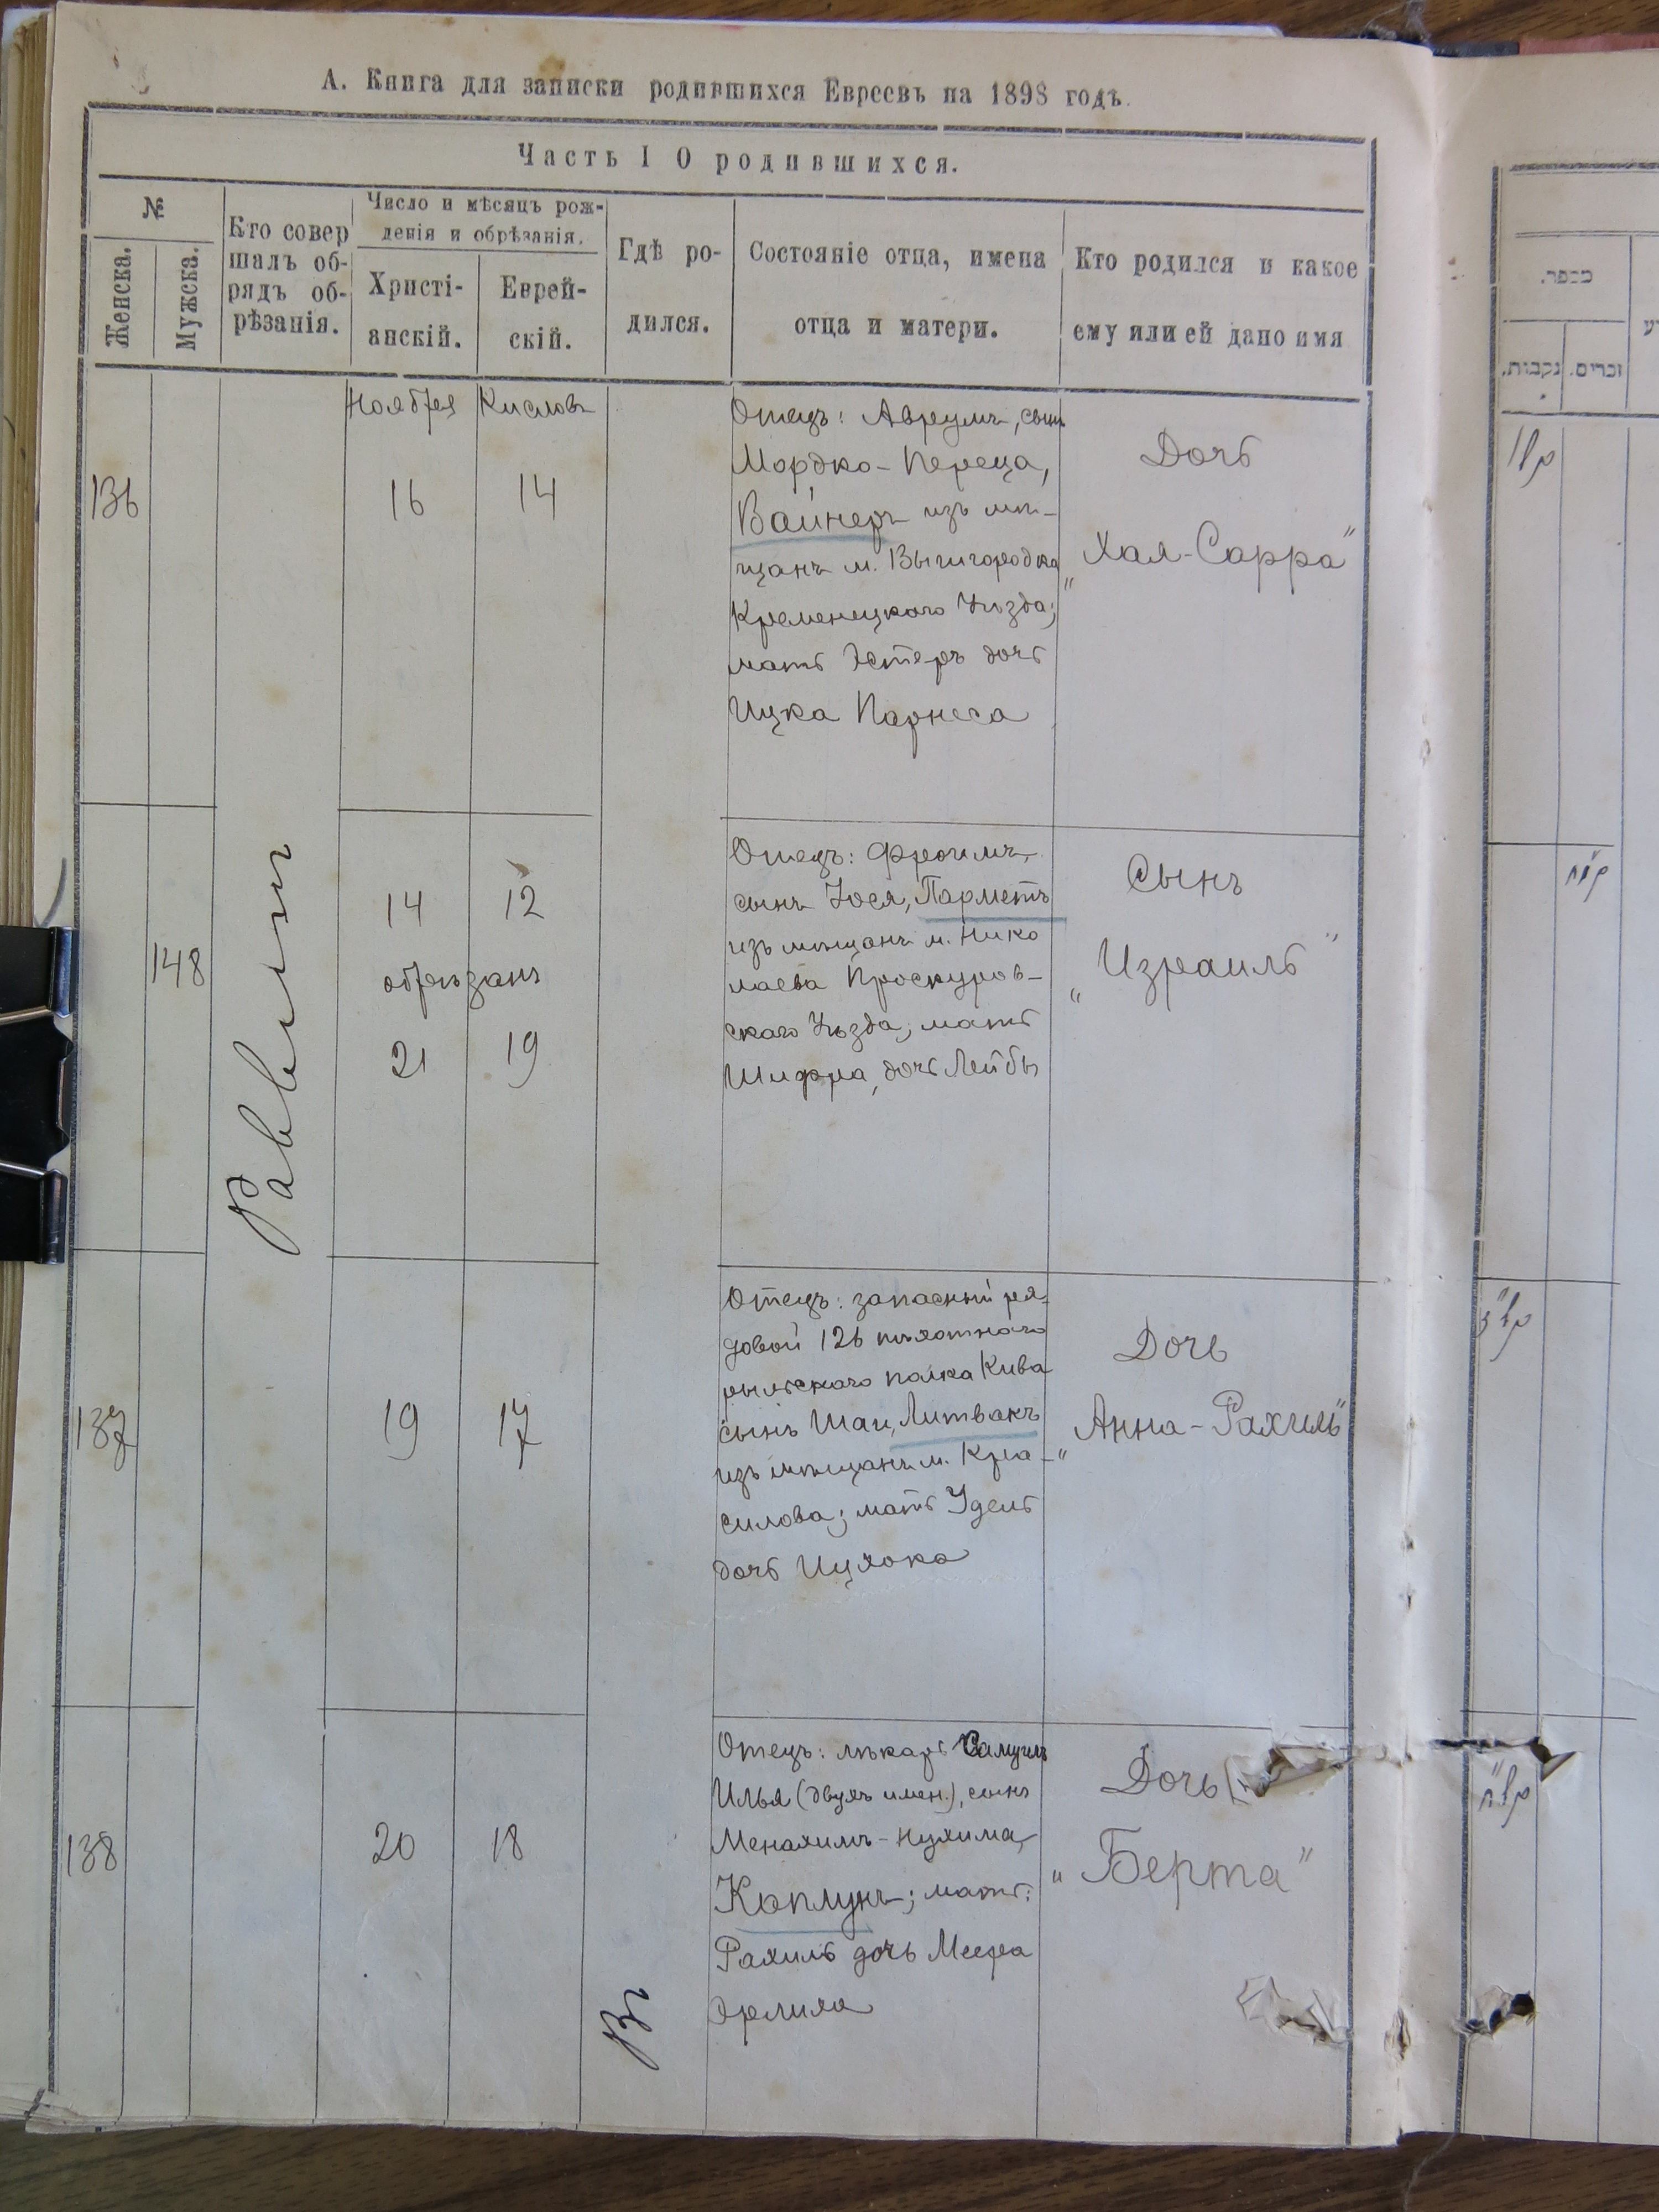 А. Книга для записки родившихся Евреевъ на 1898 годъ.
Часть I О родившихся.
№
Женска.
Мужска.
Кто совер
шалъ об-
рядъ об-
рѣзанія.
Число и мѣсяцъ рож-
денія и обрѣзанія.
Христі-
анскій.
Еврей-
скій.
Гдѣ ро-
дился.
Состояніе отца, имена
отца и матери.
Кто родился и какое
ему или ей дано имя
מספר.
נקבות.
זכרים.
Ноября
Кислова
136
16
14
Отецъ: Аврумъ, сынъ
Мордко-Переца,
Вайнеръ изъ мѣ-
щанъ м. Вышгородка
Кременецкаго Уѣзда;
мать Эстеръ дочь
Ицка Парнеса
Дочь
„Хая-Сарра"
קל"ו
Раввинъ
148
14
12
обрѣзанъ
21
19
Отецъ: Фроимъ,
сынъ Іося, Парметъ
изъ мѣщанъ м. Нико
лаева Проскуров-
скаго Уѣзда; мать
Шифра, дочь Лейбы
Сынъ
„Израиль"
קמ"ח
137
19
17
Отецъ: запасный ря-
довой 126 пѣхотнаго
рыльскаго полка Кива
сынъ Шаи, Литвакъ
изъ мѣщанъ м. Кра-
силова; мать Удель
дочь Ицхока
Дочь
„Анна-Рахиль"
קל"ז
138
20
18
Въ
Отецъ: лѣкарь Самуилъ
Илья (двухъ имен.), сынъ
Менахимъ-Нухима,
Каплунъ; мать:
Рахиль дочь Меера
Эрлиха
Дочь
„Берта"
קל"ח